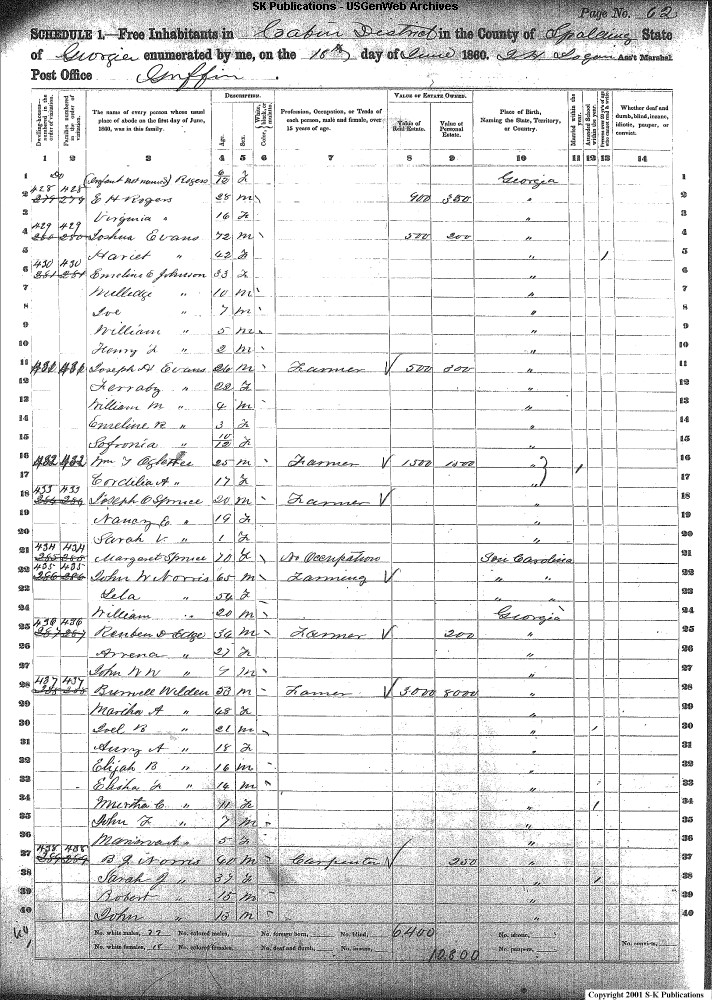 SK Publications - USGenWeb Archives
Page No. 62
SCHEDULE 1.—Free Inhabitants in Cabin District in the County of Spalding State
of Georgia enumerated by me, on the 18th day of June 1860. Ass't Marshal.
Post Office Griffin.
Dwelling-houses— numbered in the order of visitation. Families numbered in the order of visitation. The name of every person whose usual place of abode on the first day of June, 1860, was in this family. DESCRIPTION. Age. Sex. Color, White, black, or mulatto. Profession, Occupation, or Trade of each person, male and female, over 15 years of age. VALUE OF ESTATE OWNED. Value of Real Estate. Value of Personal Estate. Place of Birth, Naming the State, Territory, or Country. Married within the year. Attended School within the year. Persons over 20 y'rs of age who cannot read & write. Whether deaf and dumb, blind, insane, idiotic, pauper, or convict.
1 2 3 4 5 6 7 8 9 10 11 12 13 14
1 (Infant not named) Rogers /12 F Georgia 1
2 428 428 E H Rogers 28 m 900 350 " 2
3 Virginia " 16 F " 3
4 429 429 Joshua Evans 72 m 500 200 " 4
5 Hariet " 42 F " 1 5
6 430 430 Emeline C Johnson 33 F " 6
7 Milledge " 10 m " 7
8 " 7 m " 8
9 William " 5 m " 9
10 Henry F " 2 m " 10
11 431 431 Joseph H Evans 26 m Farmer √ 500 300 " 11
12 Ferraby " 22 F " 12
13 William M " 4 m " 13
14 Emeline R " 3 F " 14
15 Safronia " 10/12 F " 15
16 432 432 Wm T Ogletree 25 m Farmer √ 1500 1500 " 1 16
17 Cordelia A " 17 F " 17
18 433 433 Joseph O Spruce 20 m Farmer √ " 18
19 Nancy E " 19 F " 19
20 Sarah V " 1 F " 20
21 434 434 Margaret Spruce 70 F No Occupation Sou Carolina 21
22 435 435 John W Norris 65 m Farming √ " " 22
23 Lela " 54 F " " 23
24 William " 20 m Georgia 24
25 436 436 Reuben D Edge 34 m Farmer √ 200 " 25
26 Arrena " 27 F " 26
27 John W W " 7 m " 27
28 437 437 Burwell Wilden 53 m Famer √ 3000 8000 " 28
29 Martha A " 48 F " 29
30 Joel B " 21 m " 1 30
31 A " 18 F " 31
32 Elijah B " 16 m " 32
33 Elisha F " 14 m " 33
34 C " 11 F " 1 34
35 John F " 7 m " 35
36 A " 5 F " 36
37 438 438 B J Norris 40 m Carpenter √ 250 " 37
38 Sarah J " 37 F " 1 38
39 Robert " 15 m " 39
40 John " 13 m " 40
No. white males, 22 No. colored males, No. foreign born, No. blind, 6400 No. idiotic,
No. white females, 18 No. colored females, No. deaf and dumb, No. insane, 10.800 No. paupers, No. convicts,
Copyright 2001 S-K Publications